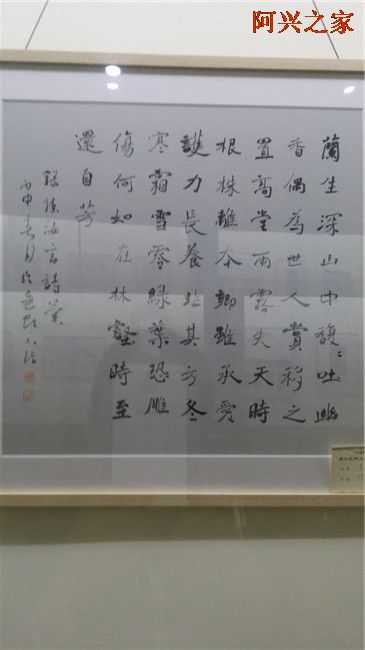 阿兴之家
蘭生深山中馥〻吐幽
香偶為世人賞移之
置高堂雨露失天時
根株離本鄉雖承愛
護力長養非其方冬
寒霜雪零緑葉恐雕
傷何如在林壑時至
還自芳
録陳汝言詩蘭
丙申